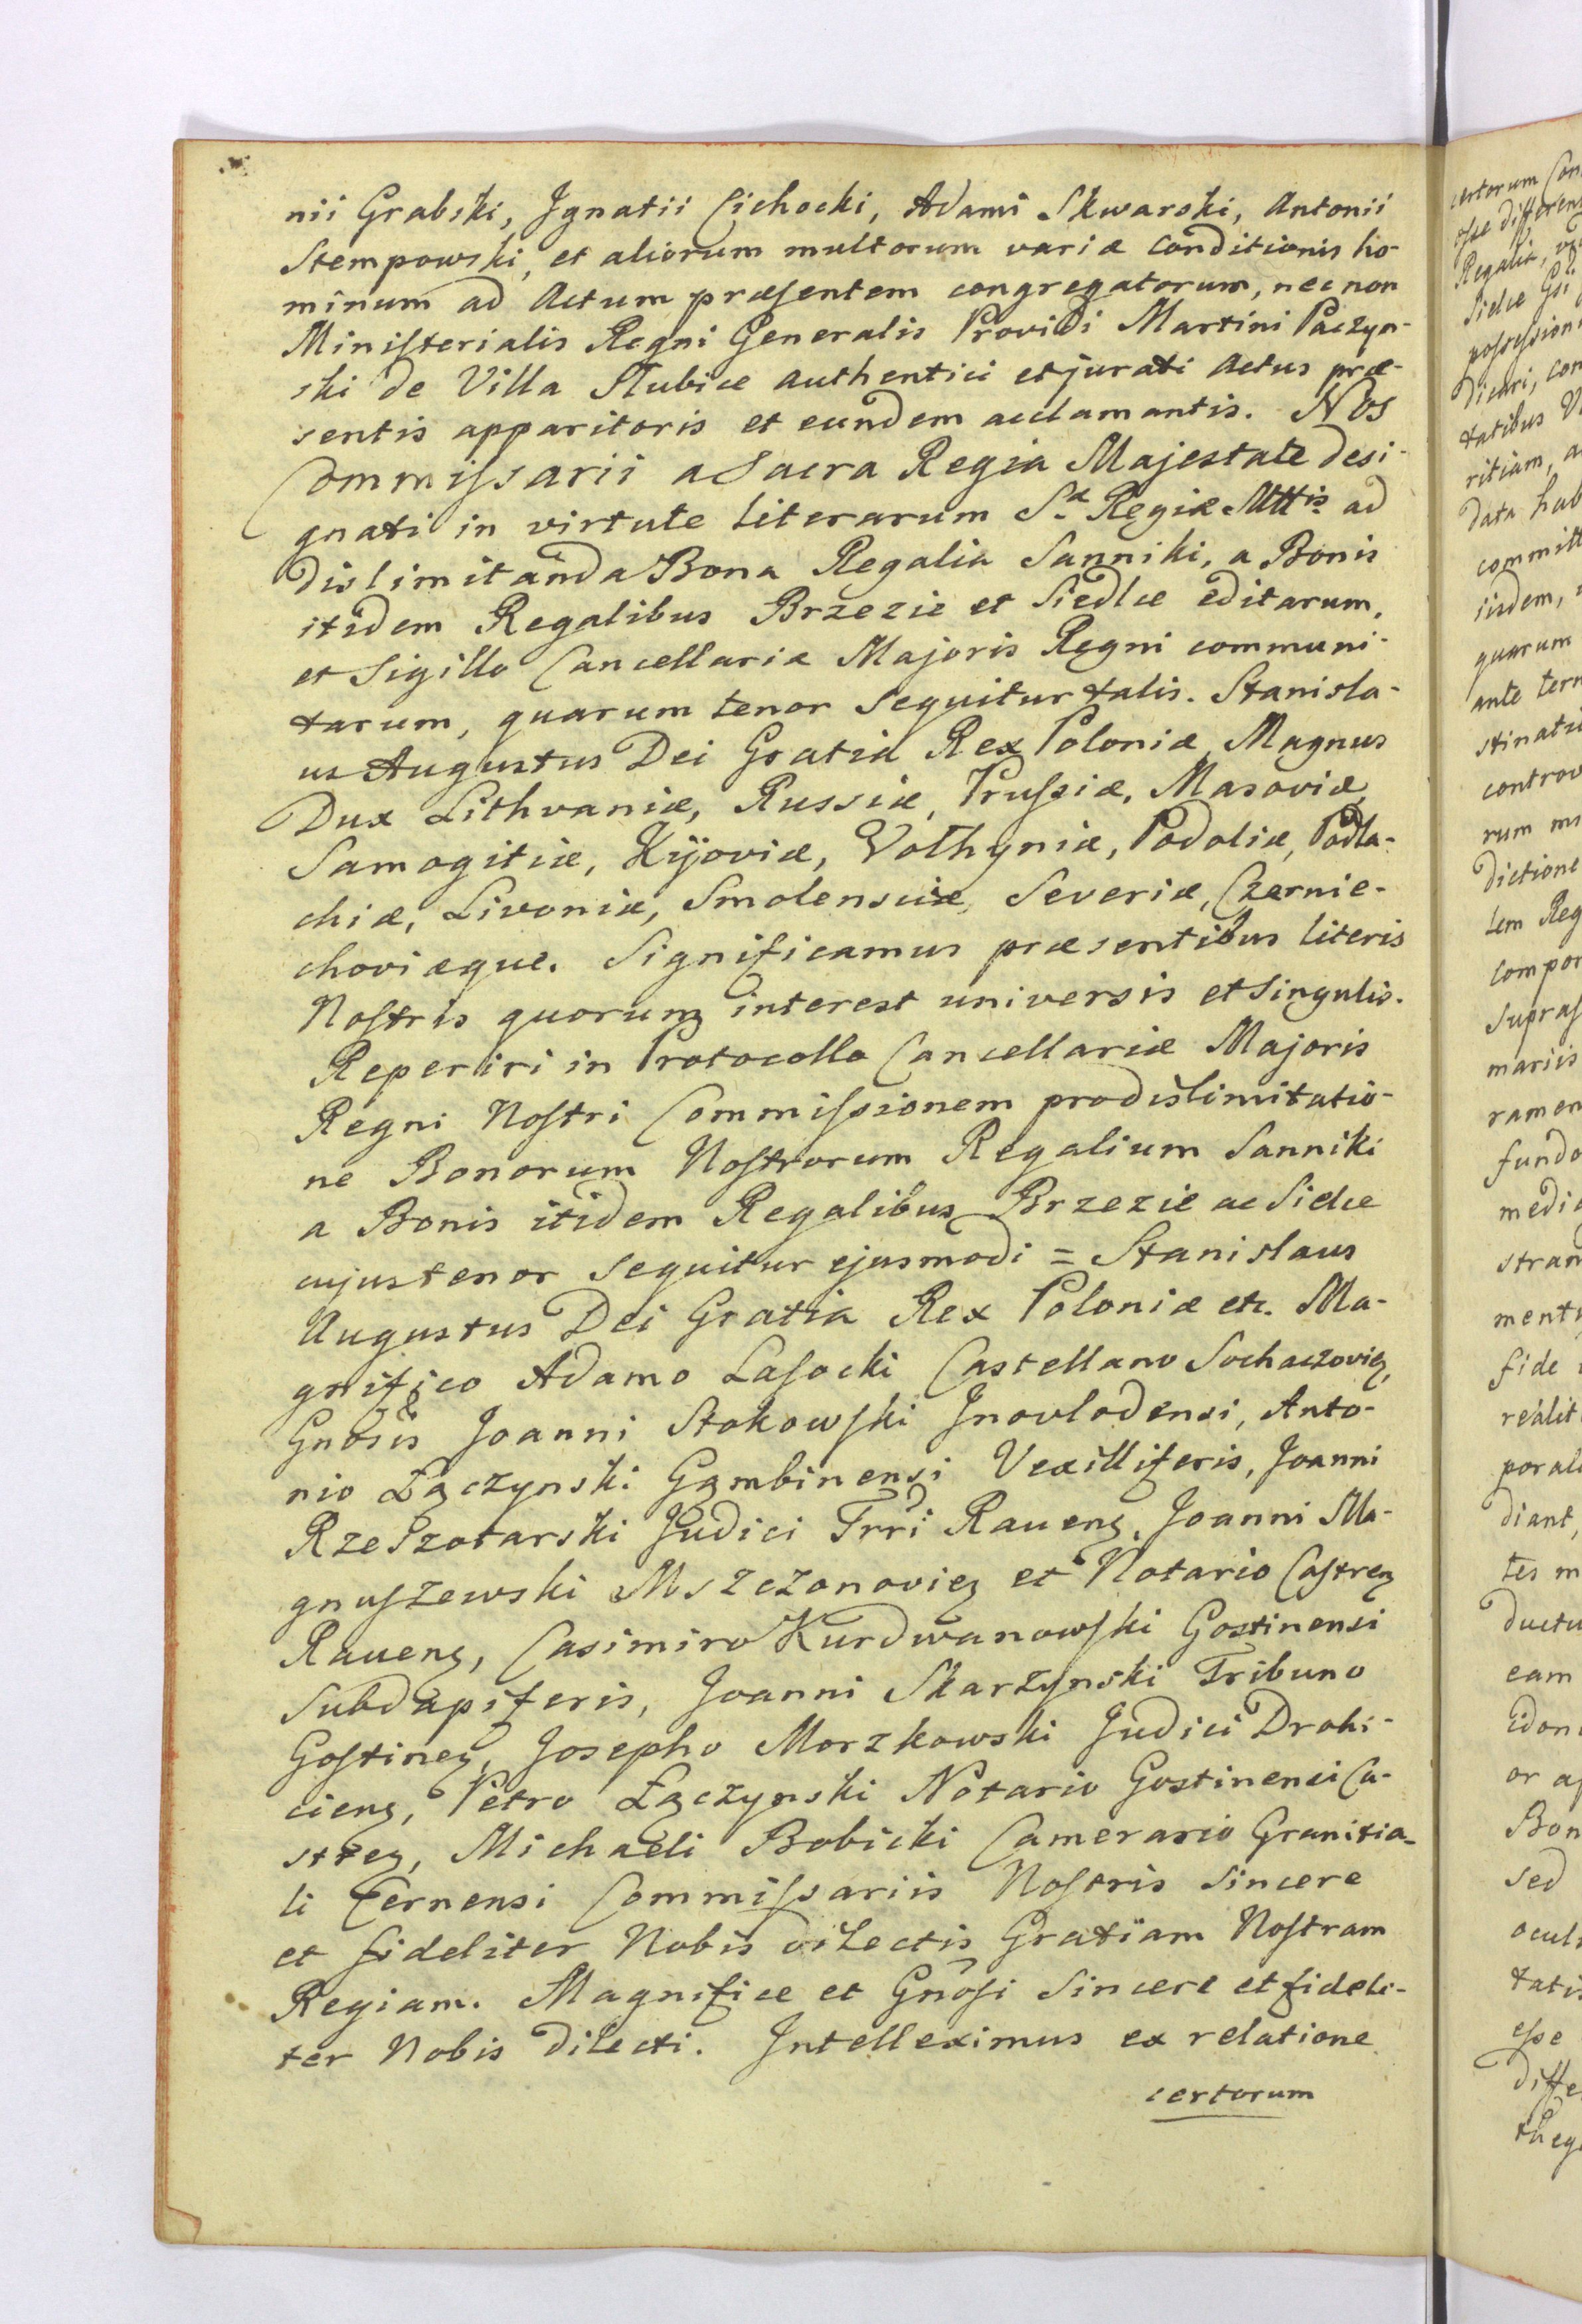 nii Grabski, Jgnatii Cichocki, Adami Skwarski, Antonii
Stempowski, et aliorum multorum variæ conditionis ho-
minum ad Actum præsentem congregatorum, nec non
Ministerialis Regni Generalis Providi Martini Paczyn-
ski de Villa Slubice authentici et jurati Actus præ-
sentis apparitoris et eundem acclamantis. Nos
Commissarii a Sacra Regia Majestate desi-
gnati in virtute literarum Sæ Regiæ Mttis ad
dislimitanda Bona Regalia Sanniki, a Bonis
itidem Regalibus Brzezie et Siedlce editarum,
et Sigillo Cancellariæ Majoris Regni communi-
tarum, quarum tenor sequitur talis. Stanisla-
us Augustus Dei Gratia Rex Poloniæ, Magnus
Dux Lithvaniæ, Russiæ, Prussiæ, Masoviæ,
Samogitiæ, Kijoviæ, Volhyniæ, Podoliæ, Podla-
chiæ, Livoniæ, Smolensciæ, Severiæ, Czernie-
choviæque. Significamus præsentibus literis
Nostris quorum interest universis et singulis.
Reperiri in Protocollo Cancellariæ Majoris
Regni Nostri Commissionem pro dislimitatio-
ne Bonorum Nostrorum Regalium Sanniki
a Bonis itidem Regalibus Brzezie ac Sielce
cujus tenor sequitur ejusmodi = Stanislaus
Augustus Dei Gratia Rex Poloniæ etc. Ma-
gnifico Adamo Lasocki Castellano Sochaczovien
Gnosis Joanni Stokowski Jnovlodensi, Anto-
nio Łączynski Gąmbinensi Vexilliferis, Joanni
Rzeszotarski Judici Trri Ravens, Joanni Ma-
gnuszewski Mszczonovien et Notario Castren
Ravens, Casimiro Kurdwanowski Gostinensi
Subdapiferis, Joanni Skarzynski Tribuno
Gostinen, Josepho Morzkowski Judici Drohi-
ciens, Petro Łączynski Notario Gostinensi Ca-
stren, Michaeli Bobicki Camerario Granitia-
li Cernensi Commissariis Nostris Sincere
et fideliter Nobis dilectis Gratiam Nostram
Regiam. Magnifice et Gnosi Sincere et fideli-
ter Nobis dilecti. Jntelleximus ex relatione
certorum